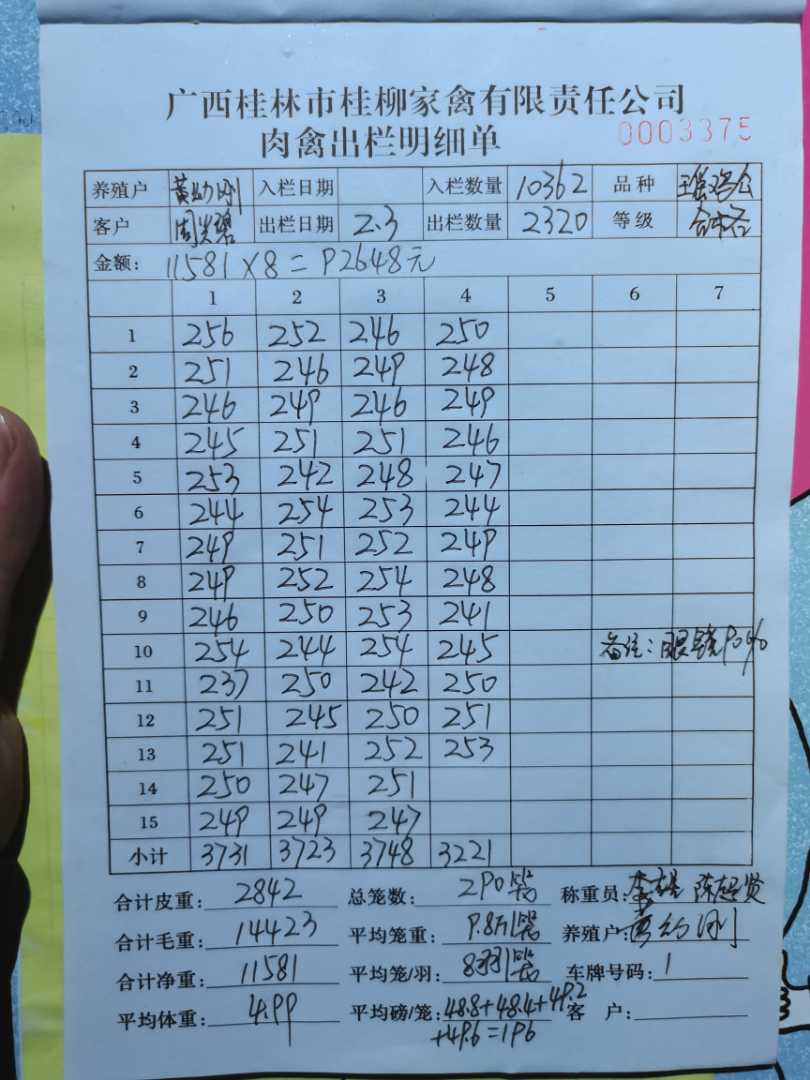 广西桂林市桂柳家禽有限责任公司
肉禽出栏明细单 0003375
养殖户 黄幼刚 入栏日期 入栏数量 10362 品种
客户 出栏日期 2.3 出栏数量 2320 等级 合格
金额: 11581×8=92648元
1 2 3 4 5 6 7
1 256 252 246 250
2 251 246 249 248
3 246 249 246 249
4 245 251 251 246
5 253 242 248 247
6 244 254 253 244
7 249 251 252 249
8 249 252 254 248
9 246 250 253 241
10 254 244 254 245 备注:眼镜90%
11 237 250 242 250
12 251 245 250 251
13 251 241 252 253
14 250 247 251
15 249 249 247
小计 3731 3723 3748 3221
合计皮重: 2842 总笼数: 290 称重员:
合计毛重: 14423 平均笼重: 9.8斤/ 养殖户: 黄幼刚
合计净重: 11581 平均笼/羽: 8羽/ 车牌号码: 1
平均体重: 4.99 平均磅/笼: 48.8+48.4+49.2 客 户:
+49.6=196